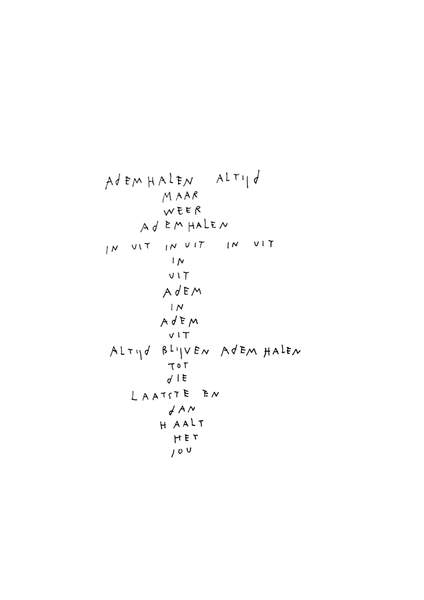 AdEMHALEN ALTIJd
MAAR
WEER
AdEMHALEN
IN UIT IN UIT IN UIT
IN
UIT
AdEM
IN
AdEM
UIT
ALTIJd BLIJVEN AdEM HALEN
TOT
dIE
LAATSTE EN
dAN
HAALT
HET
JOU